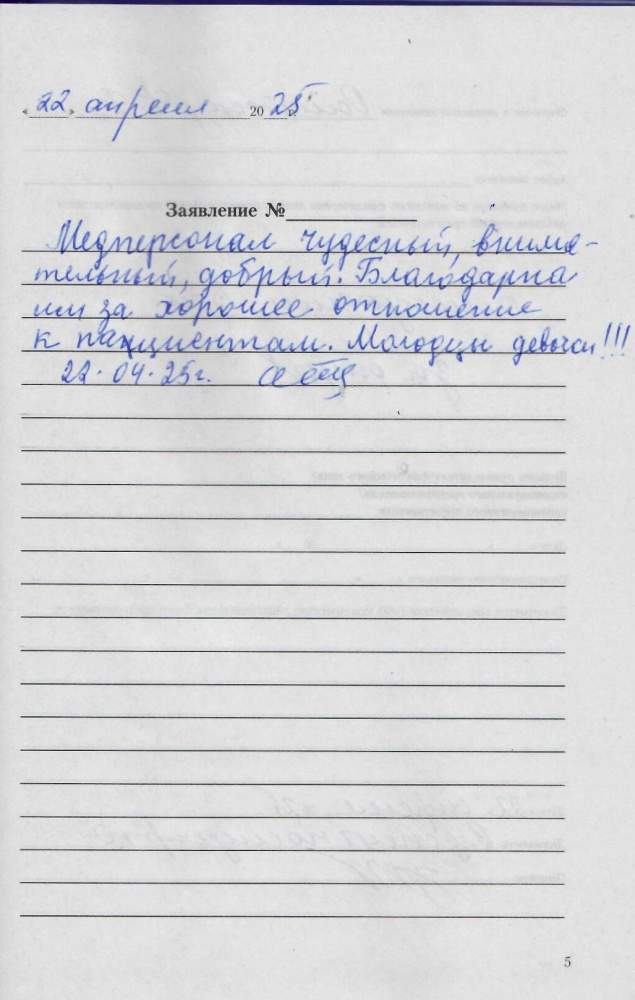 « 22 » апреля 20 25 г.
Заявление №
Медперсонал чудесный, внима-
тельный, добрый. Благодарна
им за хорошее отношение
к пациентам. Молодцы девочки!!!
22.04.25г.
5